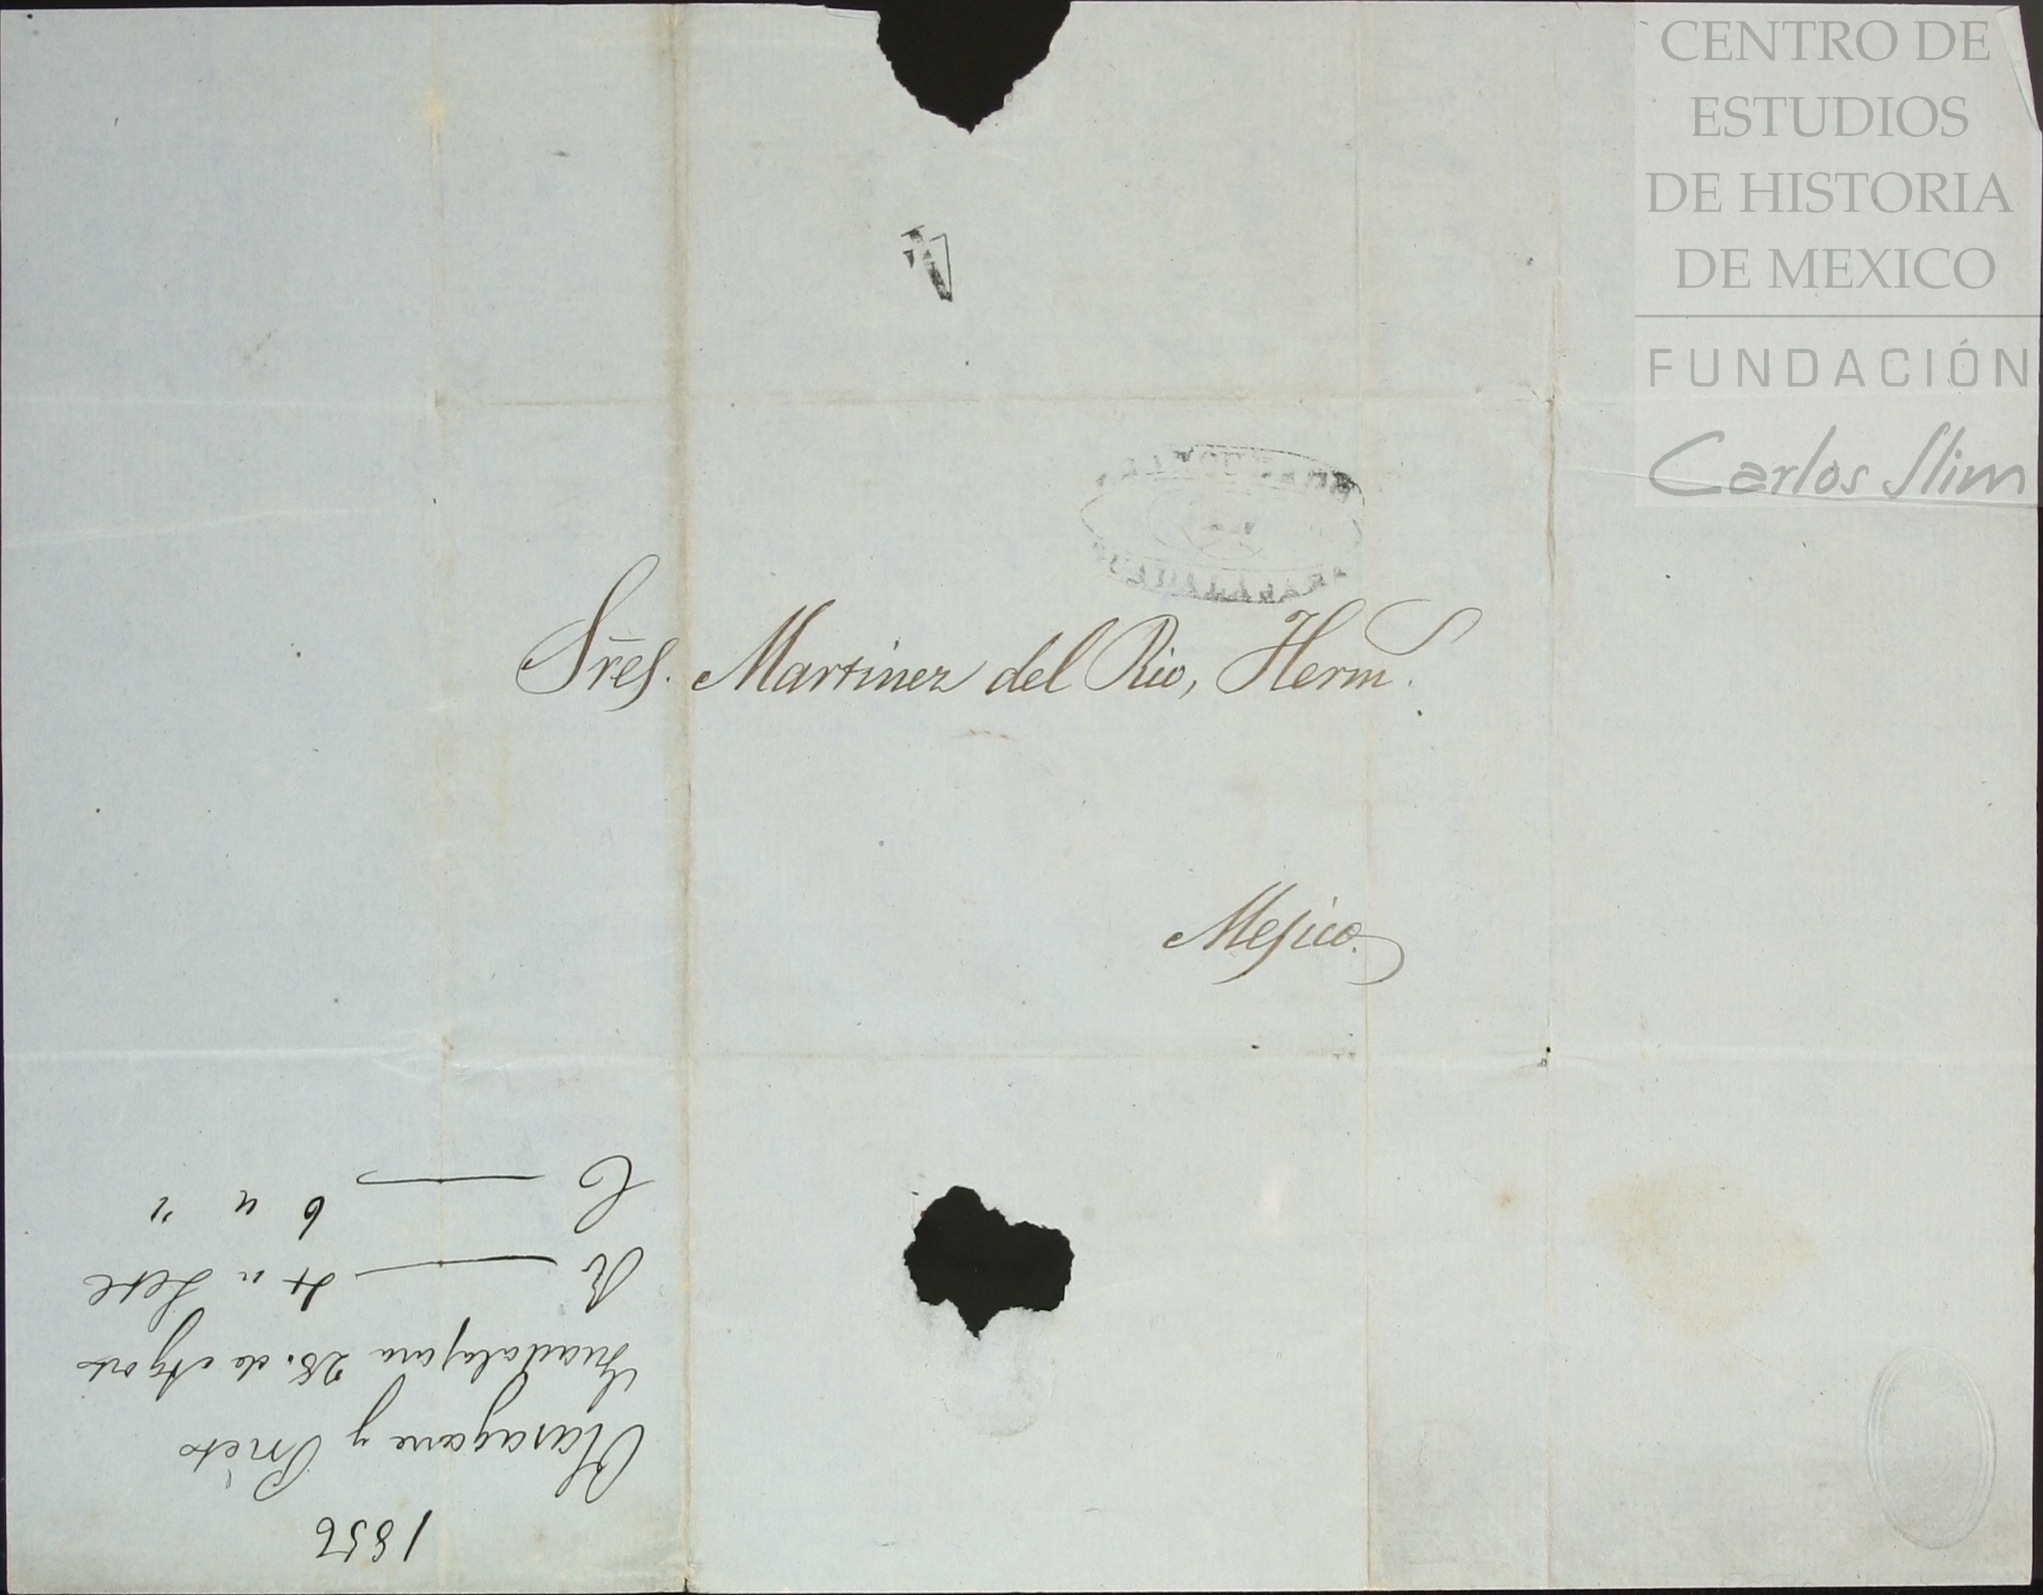 CENTRO DE
ESTUDIOS
DE HISTORIA
DE MEXICO
FUNDACIÓN
Carlos Slim
4
Sres. Martinez del Rio, Herms.
Mejico.
1856
Olasagarre y Prieto
Guadalajara 28. de Agosto
R — 4 " Sete
C — 6 " "